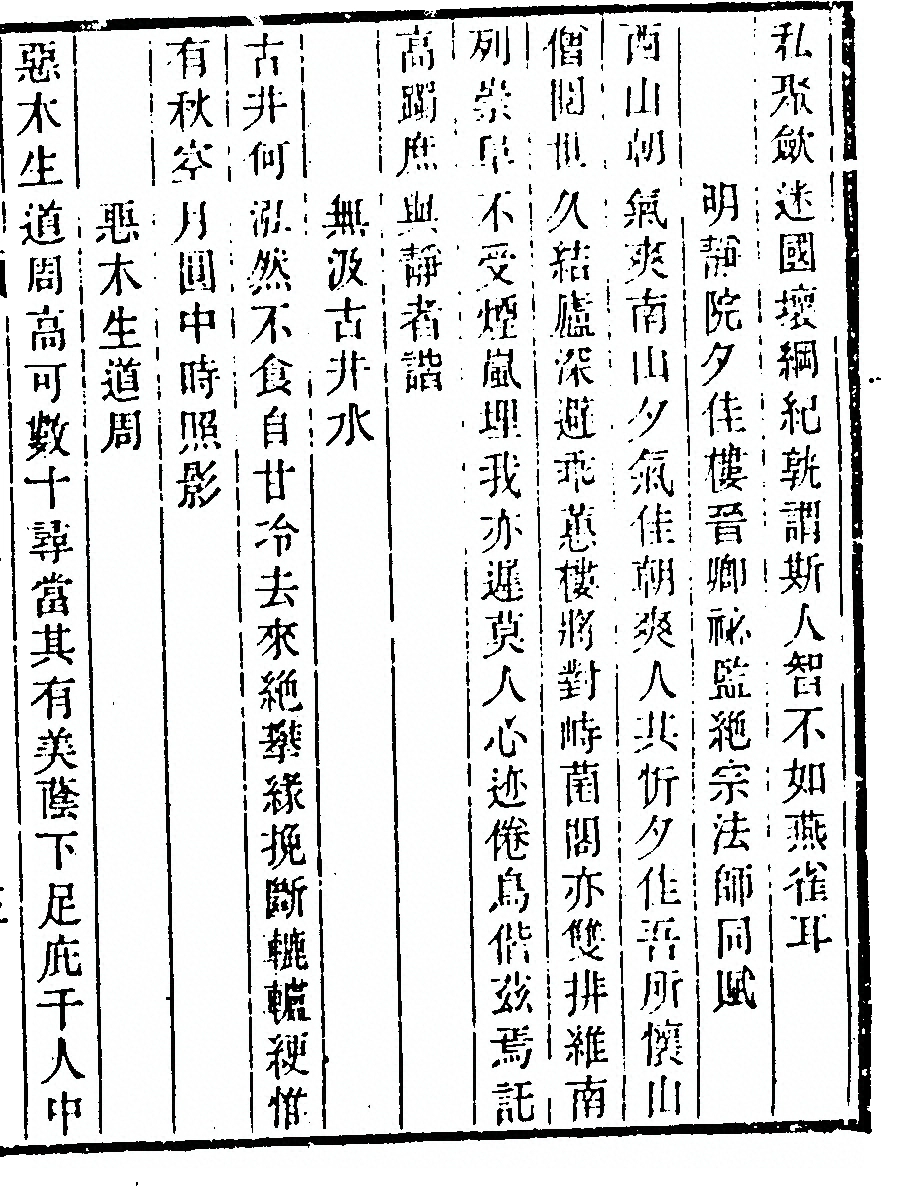 私聚歛迷國壞綱紀孰謂斯人智不如燕雀耳
明靜院夕佳樓晉卿祕監絶宗法師同賦
西山朝氣爽南山夕氣佳朝爽人共忻夕佳吾所懷山
僧閱世久結廬深避乖蒽樓將對峙菌閣亦雙排維南
列崇阜不受煙嵐埋我亦遲莫人心迹倦鳥偕茲焉託
高躅庶與靜者諧
無汲古井水
古井何泓然不食自甘冷去來絶攀緣挽斷轆轤綆惟
有秋空月圓中時照影
惡木生道周
惡木生道周高可數十尋當其有美蔭下足庇千人中